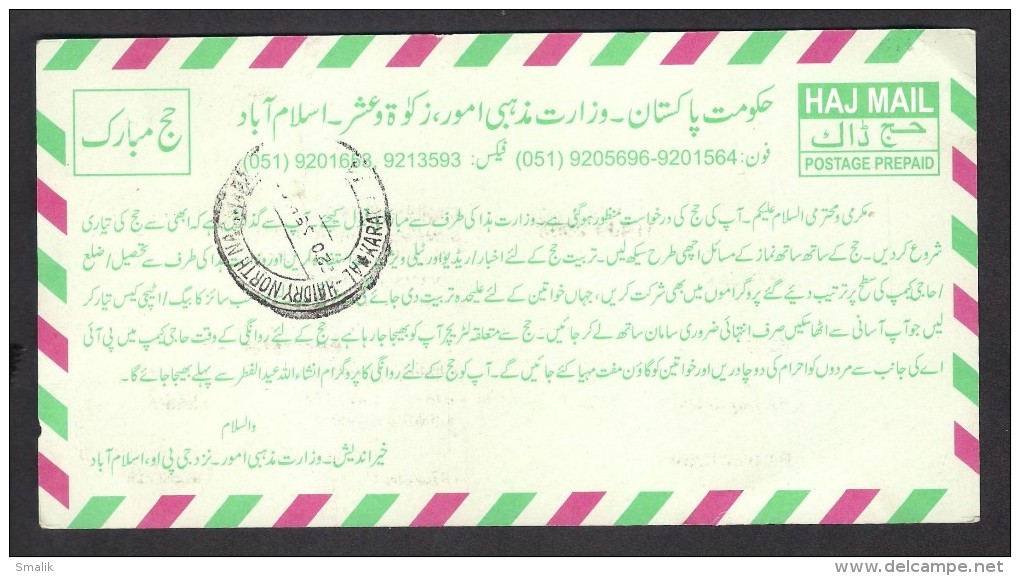 HAJ MAIL
حج ڈاک
POSTAGE PREPAID
حج مبارک
حکومت پاکستان۔ وزارت مذہبی امور، زکوٰۃ و عشر۔ اسلام آباد
فون: 9201564-9205696 (051) فیکس: 9213593, 9201653 (051)
مکرمی و محترمی السلام علیکم۔ آپ کی حج کی درخواست منظور ہو گئی ہے۔ وزارت ہذا کی طرف سے قبول کیجئے۔ آپ سے ہے کہ ابھی سے حج کی تیاری
شروع کر دیں۔ حج کے ساتھ ساتھ نماز کے مسائل اچھی طرح سیکھ لیں۔ تربیت حج کے لئے اخبار/ریڈیو اور ٹیلی ویژن اور وزارت ہذا کی طرف سے تحصیل/ضلع
/حاجی کیمپ کی سطح پر ترتیب دیئے گئے پروگراموں میں بھی شرکت کریں، جہاں خواتین کے لئے علیحدہ تربیت دی جائے گی۔ سائز کا بیگ/اٹیچی کیس تیار کر
لیں جو آپ آسانی سے اٹھا سکیں صرف انتہائی ضروری سامان ساتھ لے کر جائیں۔ حج سے متعلقہ لٹریچر آپ کو بھیجا جا رہا ہے۔ حج کے لئے روانگی کے وقت حاجی کیمپ میں پی آئی
اے کی جانب سے مردوں کو احرام کی دو چادریں اور خواتین کو گاؤن مفت مہیا کئے جائیں گے۔ آپ کو حج کے لئے روانگی کا پروگرام انشاء اللہ عید الفطر سے پہلے بھیجا جائے گا۔
والسلام
خیر اندیش۔ وزارت مذہبی امور۔ نزد جی پی او، اسلام آباد
AL-HAIDRY NORTH NA
KARA
Smalik
www.delcampe.net